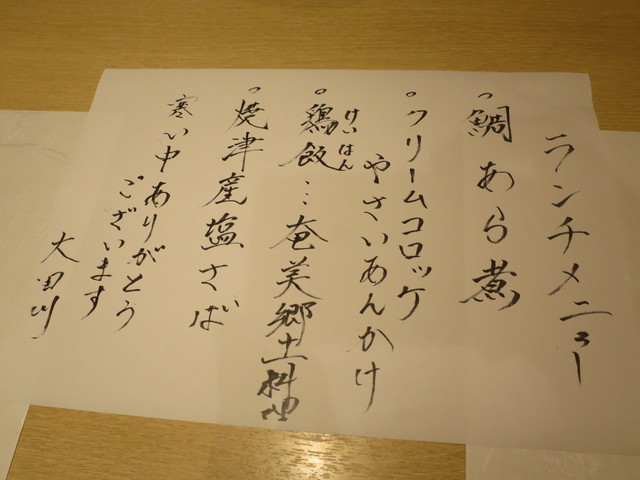 ランチメニュー
○鯛あら煮
○クリームコロッケ
やさいあんかけ
○鶏飯…奄美郷土料理
けいはん
○焼津産塩さば
寒い中ありがとう
ございます
大田川